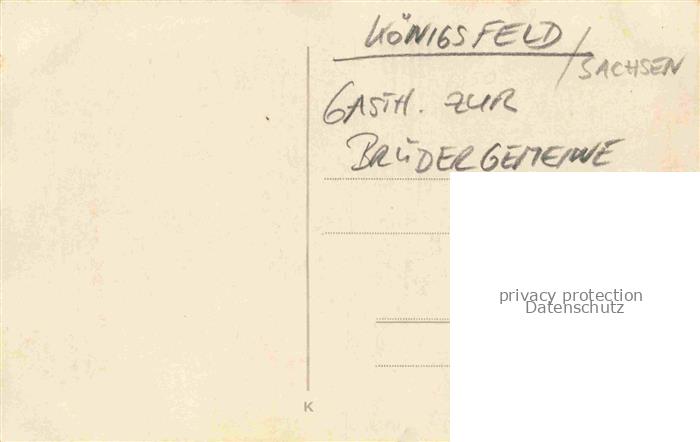 KÖNIGSFELD
/SACHSEN
GASTH. ZUR
BRÜDERGEMEINE
privacy protection
Datenschutz
K